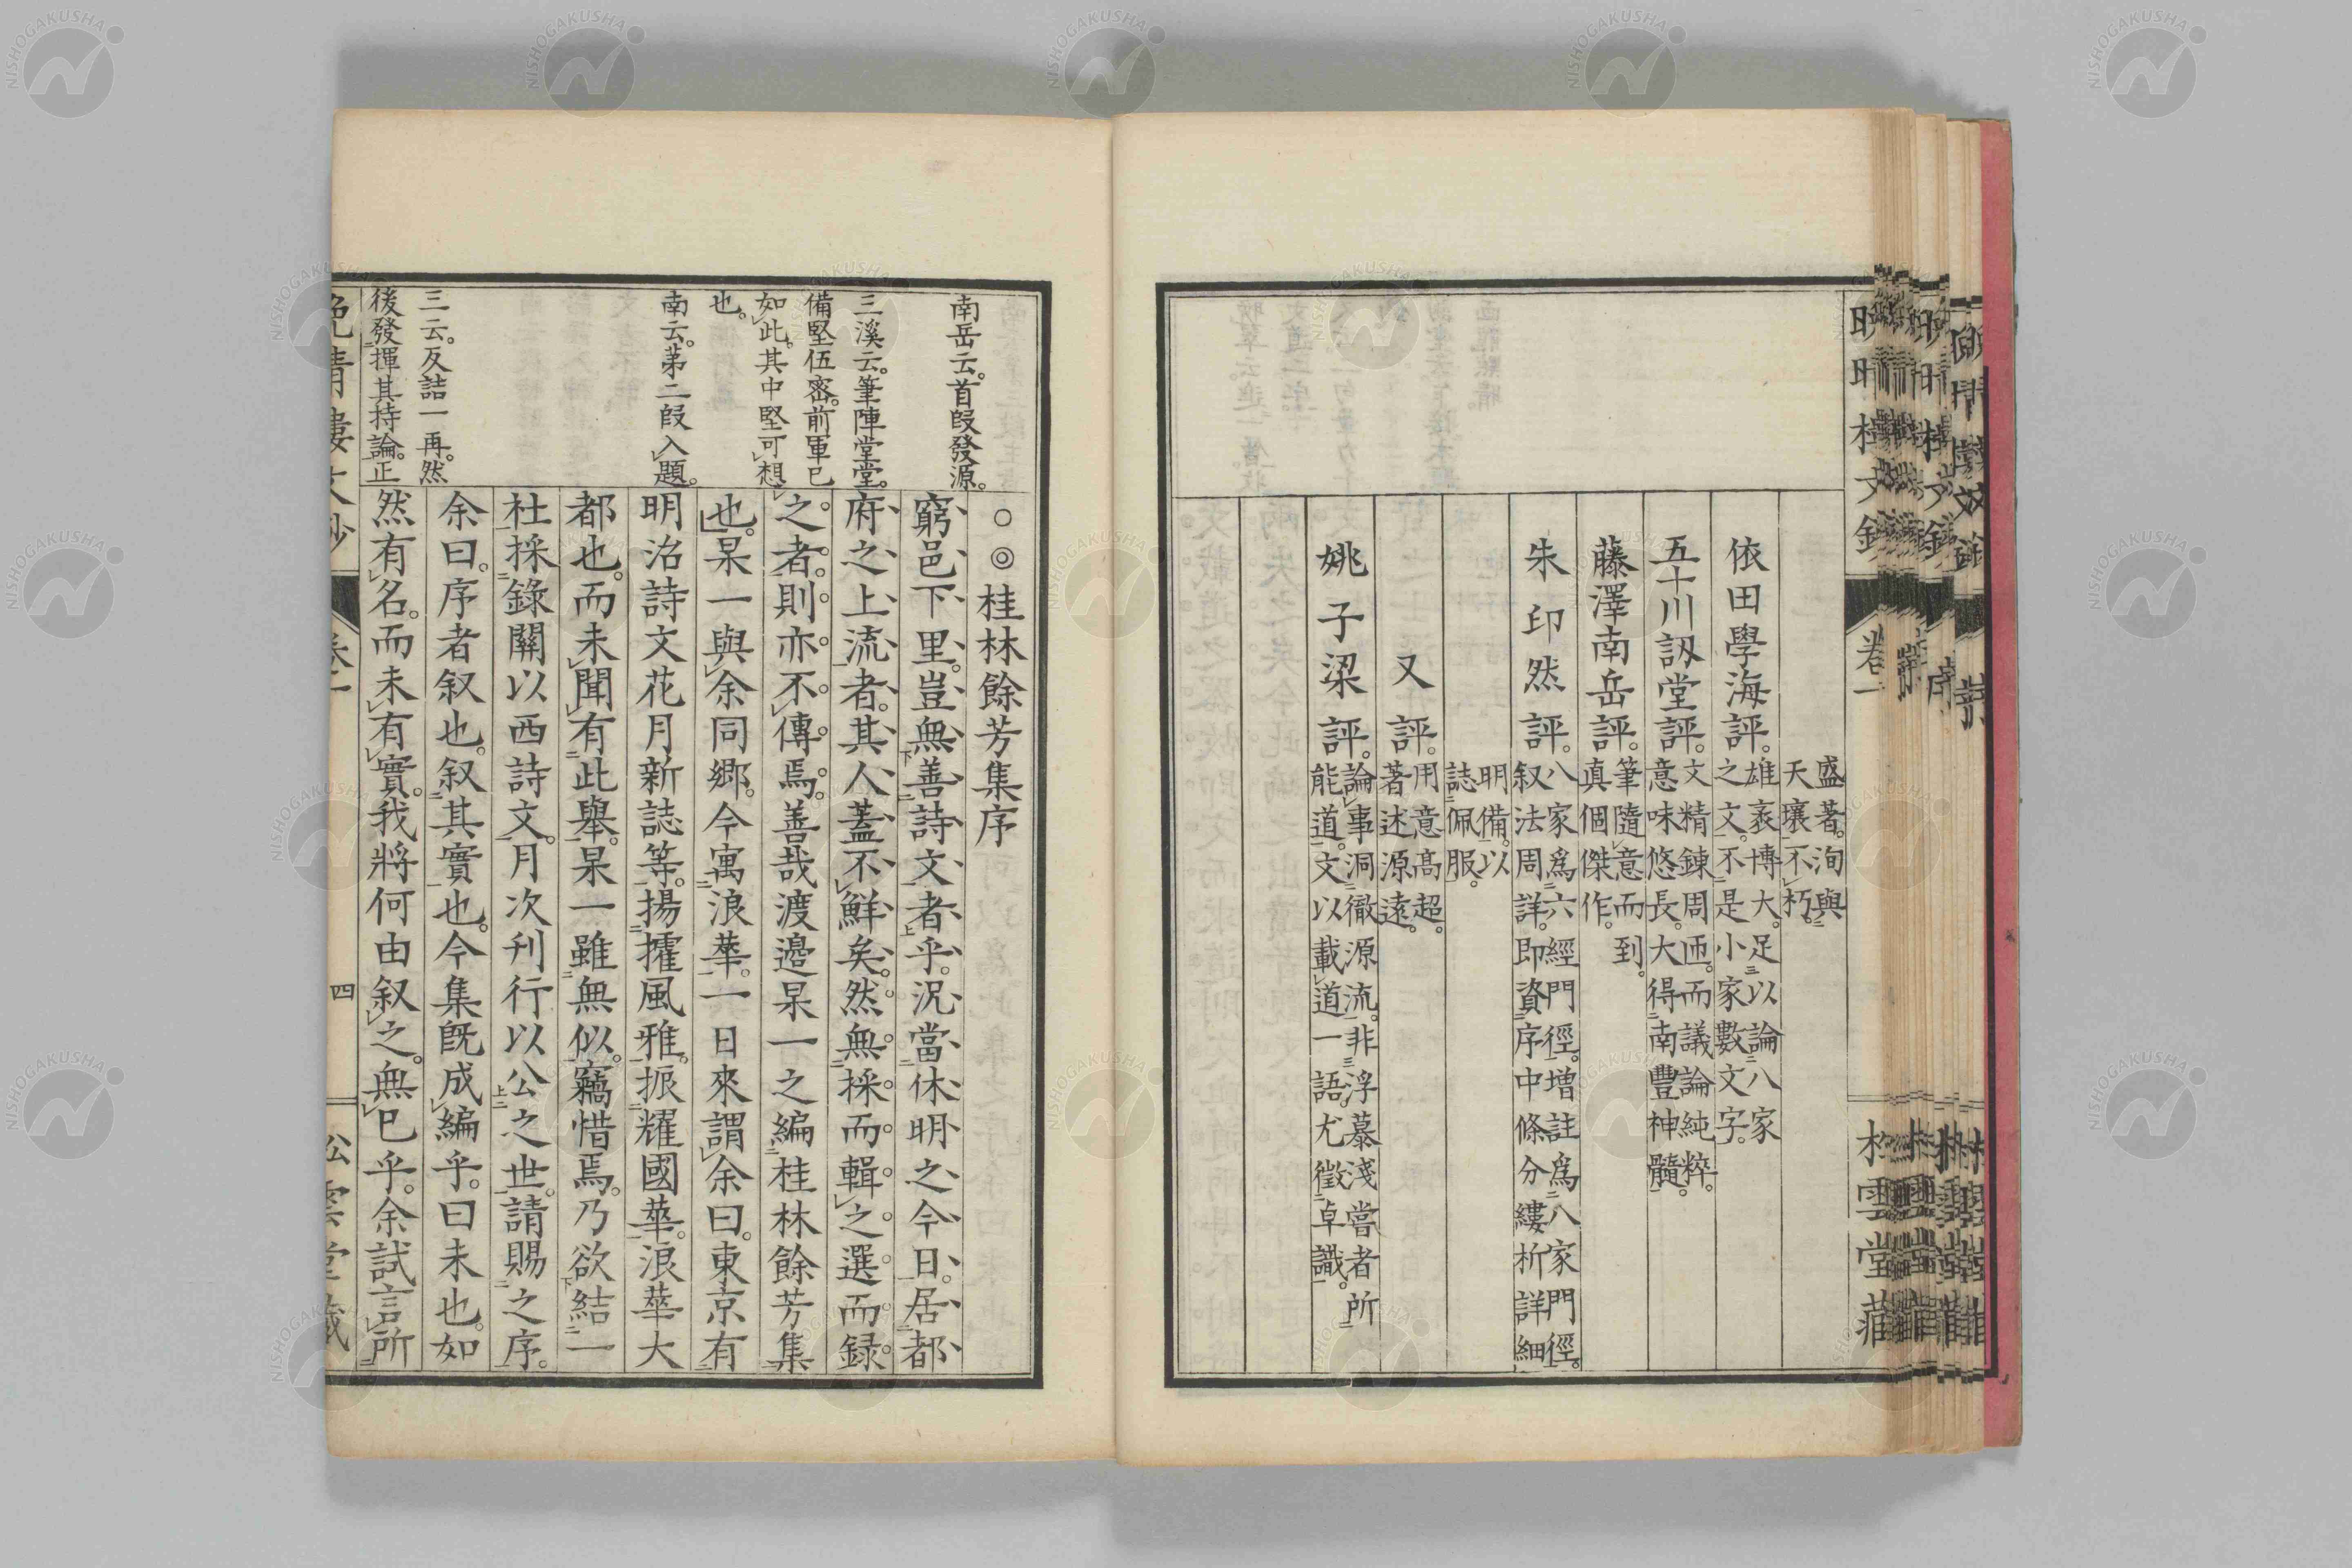 盛著。洵與
天壤不朽。
依田學海評。雄袤博大。足以論八家
之文。不是小家數文字。
五十川訒堂評。文精鍊周匝。而議論純粹。
意味悠長。大得南豐神髓。
藤澤南岳評。筆隨意而到。
真個傑作。
朱印然評。八家爲六經門徑。増註爲八家門徑。
叙法周詳。即資序中條分縷析詳細
明備。以
誌佩服。
又評。用意高超。
著述源遠。
姚子梁評。論事洞徹源流。非浮慕淺嘗者所
能道。文以載道一語。尤徵卓識。
卷一
南岳云。首段發源。
三溪云。筆陣堂堂。
備堅伍密。前軍已
如此。其中堅可想
也。
南云。第二段入題。
三云。反詰一再。然
後發揮其持論。正
○◎桂林餘芳集序
窮邑下里。豈無善詩文者乎。況當休明之今日。居都
府之上流者。其人蓋不鮮矣。然無採而輯之選而録
之者。則亦不傳焉。善哉渡邉杲一之編桂林餘芳集
也。杲一與余同郷。今寓浪華。一日來謂余曰。東京有
明治詩文花月新誌等。揚㩴風雅。振耀國華。浪華大
都也。而未聞有此舉。杲一雖無似。竊惜焉。乃欲結一
杜採錄關以西詩文。月次刋行以公之世。請賜之序。
余曰。序者叙也。叙其實也。今集既成編乎。曰未也。如
然有名。而未有實。我將何由叙之。無已乎。余試言所
四